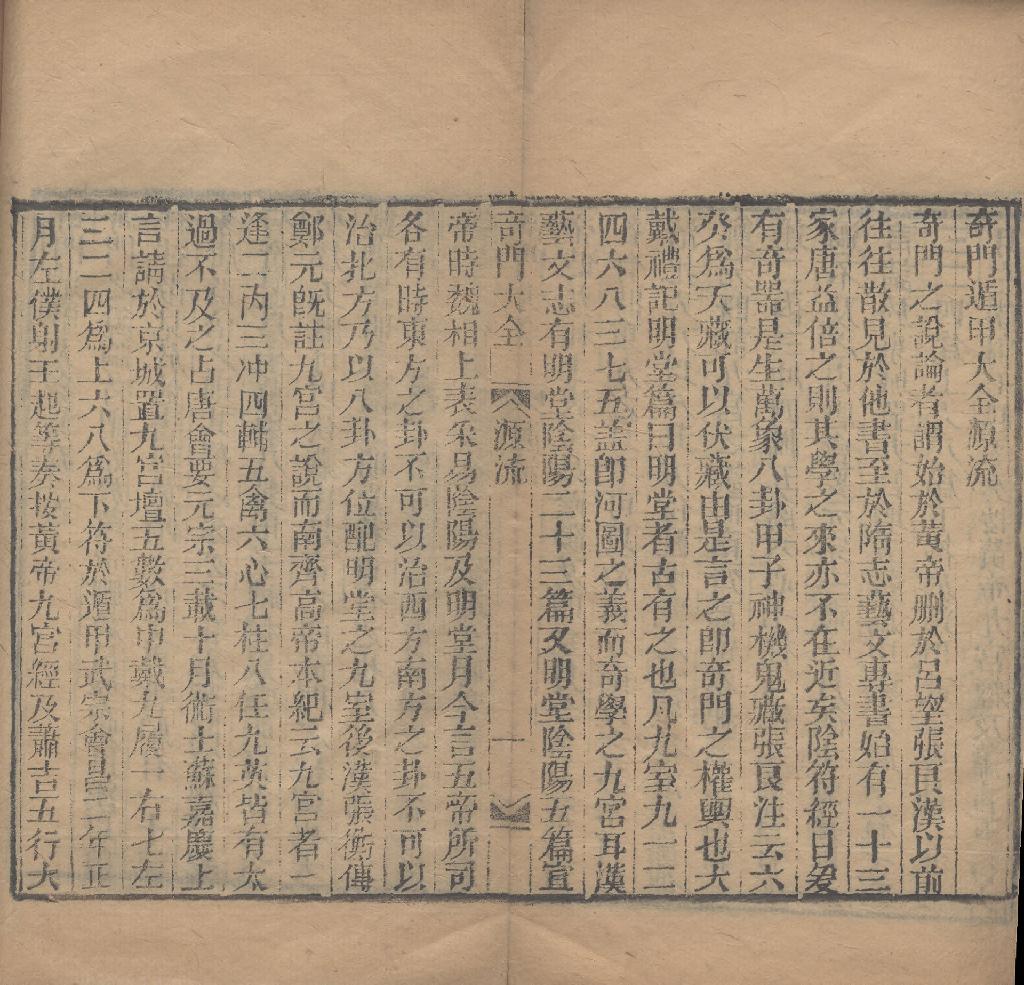 奇門遁甲大全源流
奇門之說論者謂始於黃帝刪於呂望張良漢以前
往往散見於他書至於隋志藝文專書始有一十三
家唐益倍之則其學之來亦不在近矣陰符經曰爰
有奇器是生萬象八卦甲子神機鬼藏張良注云六
癸爲天藏可以伏藏由是言之卽奇門之權輿也大
戴禮記明堂篇曰明堂者古有之也凡九室九一二
四六八三七五蓋卽河圖之義而奇學之九宮耳漢
藝文志有明堂陰陽二十三篇又明堂陰陽五篇宣
奇門大全 源流 一
帝時魏相上表采易陰陽及明堂月令言五帝所司
各有時東方之卦不可以治西方南方之卦不可以
治北方乃以八卦方位配明堂之九室後漢張衡傳
鄭元旣註九宮之說而南齊高帝本紀云九宮者一
逢二內三冲四輔五禽六心七柱八任九英皆有太
過不及之占唐會要元宗三載十月術士蘇嘉慶上
言請於京城置九宮壇五數爲中戴九履一右七左
三二四爲上六八爲下符於遁甲武宗會昌二年正
月左僕射王起等奏按黃帝九宮經及蕭吉五行大